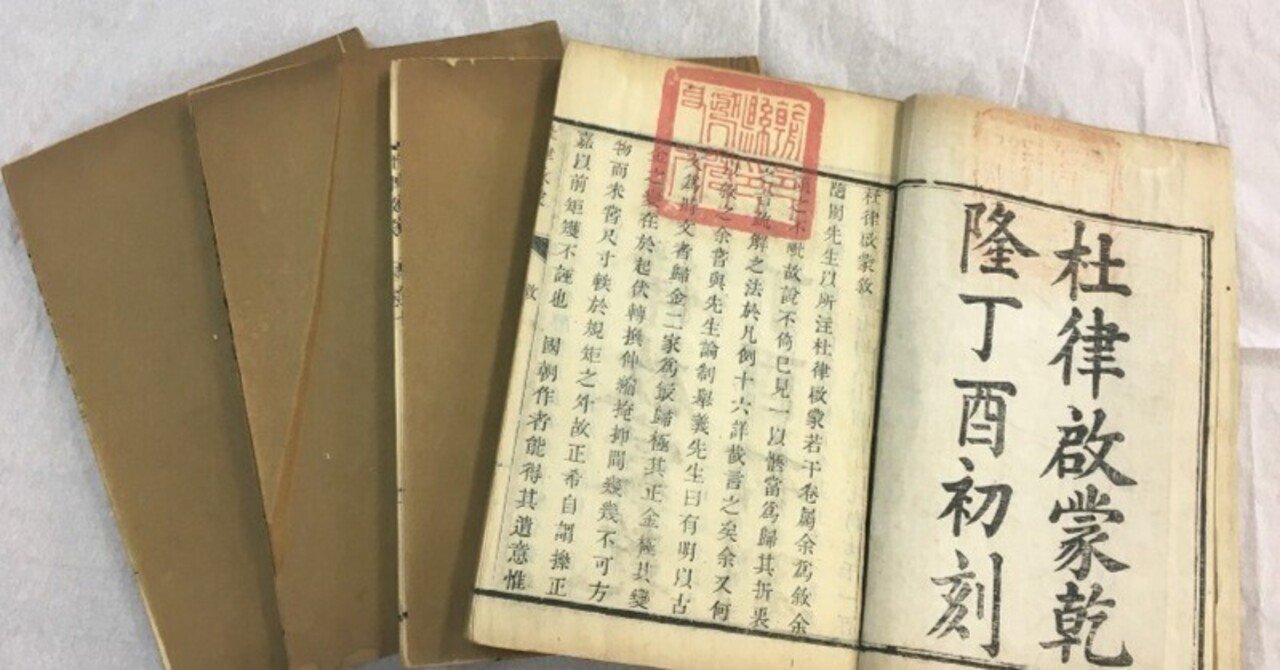 杜律啟蒙乾
隆丁酉初刻
杜律啟蒙敘
隨園先生以所注杜律啟蒙若干卷屬余為敘余
故說不倚已見一以愜當為歸其折衷
疏解之法於凡例十六詳哉言之矣余又何
之余嘗與先生論制舉義先生曰有明以古
文為時文者歸金二家為最歸極其正金極其變
金之變在於起伏轉換伸縮掩抑間幾幾不可方
物而未嘗尺寸軼於規矩之外故正希自謂操正
嘉以前矩矱不誣也 國朝作者能得其遺意惟